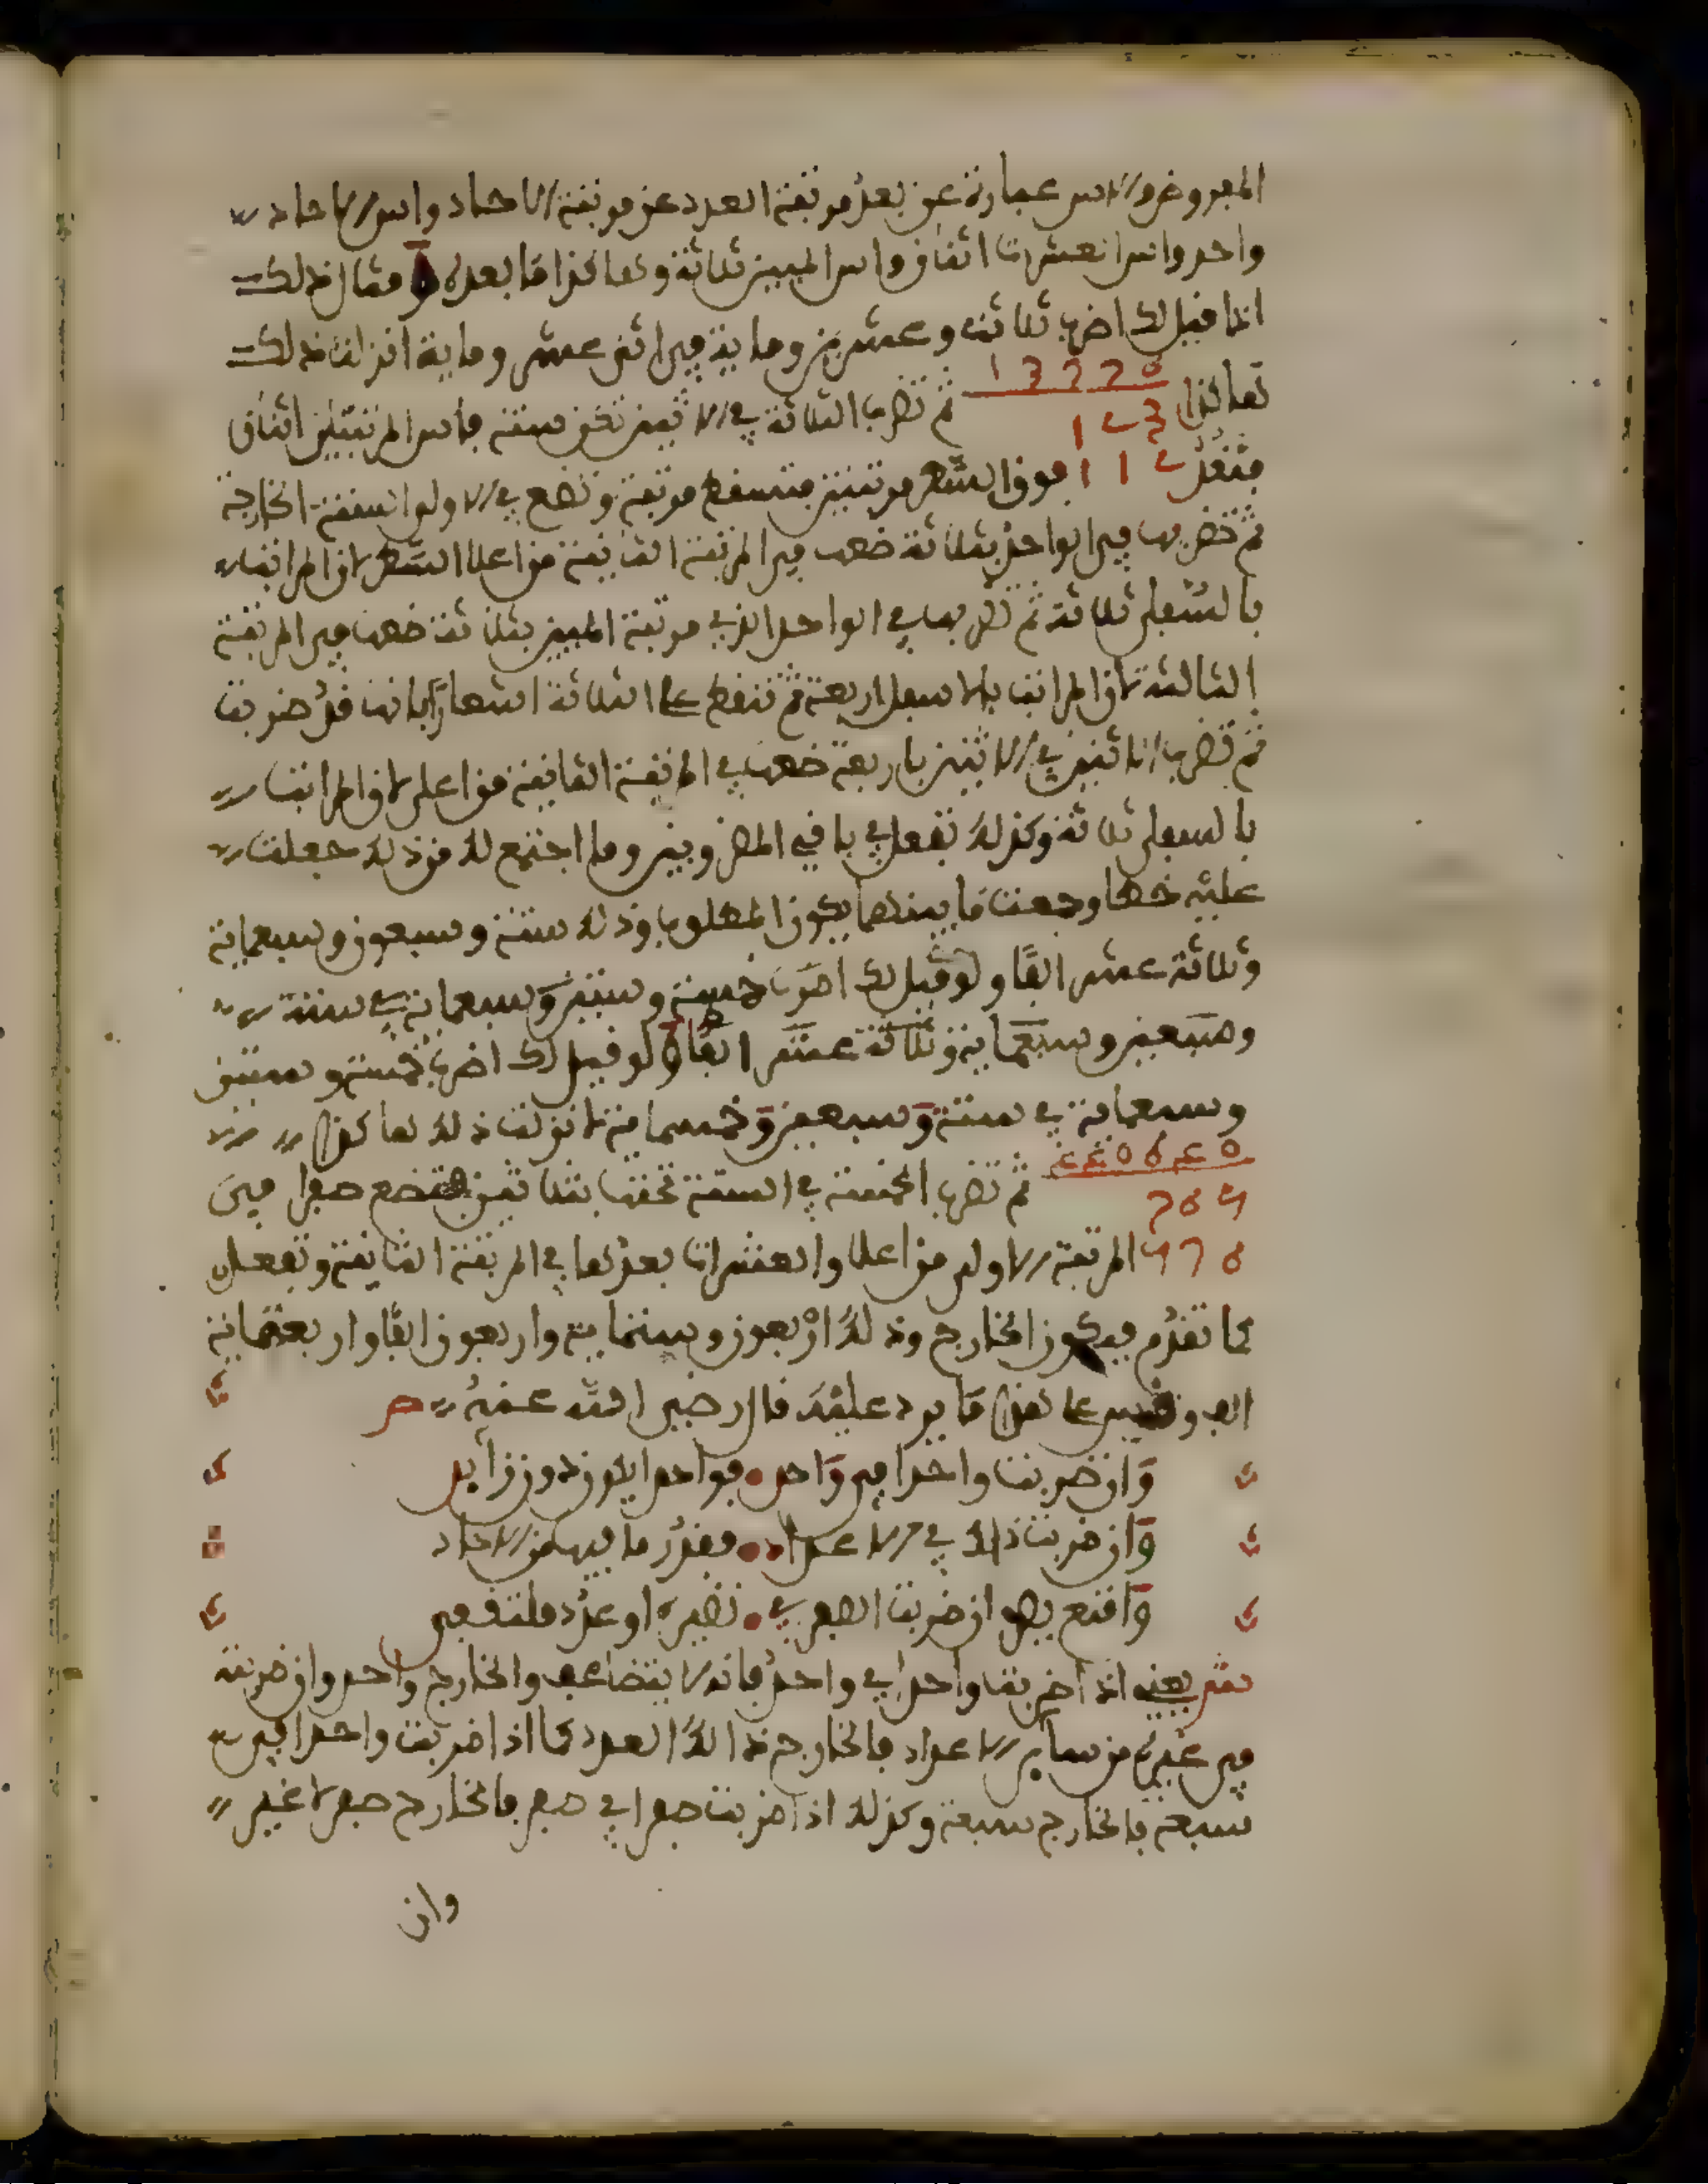 المعروض والاس عبارة عن بعد مرتبة العدد عن مرتبة الاحاد واس الاحاد
واحد واس العشرات اثنان واس الميين ثلاثة وهاكذا ما بعده ومثال ذلك
اذا قيل لك اضرب ثلاثة وعشرين وماية في اثنى عشر وماية انزلت ذلك
هاكذا 13776 ثم تضرب الثلاثة في الاثنين تخرج ستة واس المرتبتين اثنان
123
فتنقل 112 فوق السطر مرتبتين فتسقط مرتبة وتضع في الاولى الستة الخارجة
ثم تضربها في الواحد بثلاثة ضعها في المرتبة الثانية من اعلا السطر لان المراتب
بالسفلى ثلاثة ثم تضربها في الواحد الذي في مرتبة الميين بثلاثة ضعها في المرتبة
الثالثة لان المراتب بالاسفل اربعة ثم تنقط على الثلاثة اشعارا بانها قد ضربت
ثم تضرب الاثنين في الاثنين باربعة ضعها في المرتبة الثانية من اعلى لان المراتب
بالسفلى ثلاثة وكذلك تفعل في باقي المضروبين وما اجتمع لك من ذلك جعلت
عليه خطا وجمعت ما بينهما يكون المطلوب وذلك ستة وسبعون وسبعماية
وثلاثة عشر الفا ولو قيل لك اضرب خمسة وستين وسبعماية في ستة
وسبعين وسبعماية وثلاثة عشر الفا ولو قيل لك اضرب خمسة وستين
وسبعماية في ستة وسبعين وخمسماية لانزلت ذلك هاكذا
440640 ثم تضرب الخمسة في الستة تحتها بثلاثين فتضع صفرا في
765
576 المرتبة الاولى من اعلا والعشرات بعدها في المرتبة الثانية وتفعل
كما تقدم فيكون الخارج وذلك اربعون وستماية واربعون الفا واربعماية
الف وقس على هذا ما يرد عليك قال رضي الله عنه ص
وان ضربت واحدا في واحد فواحدا يكون دون زايد
وان ضربت ذاك في الاعداد فقدر ما فيها من الاحاد
واقنع بصفر ان ضربت الصفر في نظيره او عدد فلتقتفي
ش يعني اذا ضربت واحدا في واحد فانه لا يتضاعف والخارج واحد وان ضربته
في غيره من ساير الاعداد فالخارج ذالك العدد كما اذا ضربت واحدا في
سبعة فالخارج سبعة وكذلك اذا ضربت صفرا في صفر فالخارج صفر لا غير
وان